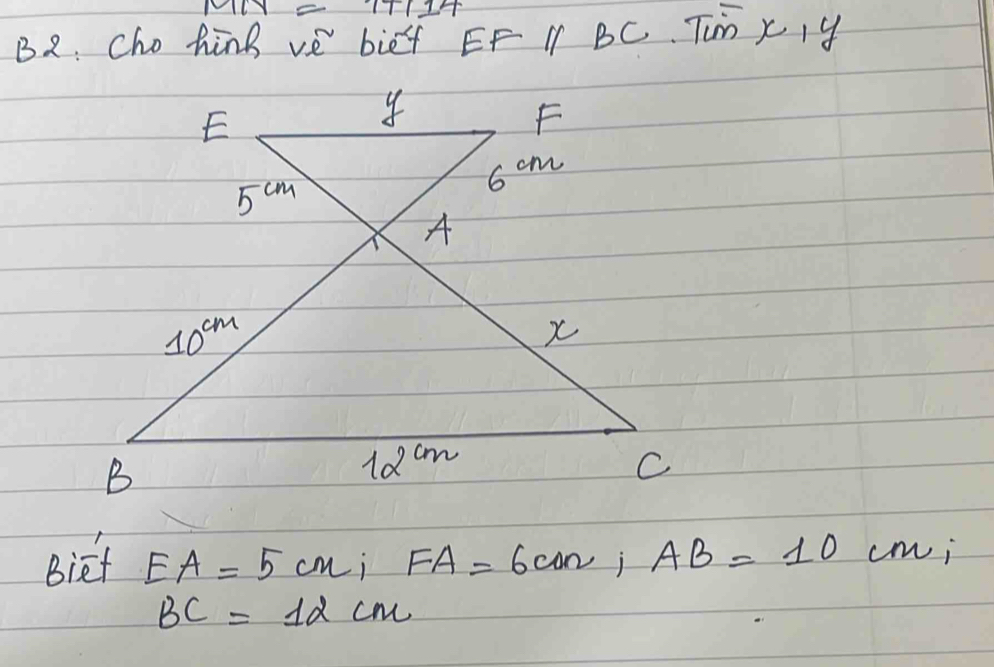 MN =
B2. Cho hình vẽ biết EF // BC. Tìm x, y
y
E F
5 cm 6 cm
A
10 cm x
B 12 cm C
Biết EA = 5 cm; FA = 6 cm; AB = 10 cm;
BC = 12 cm